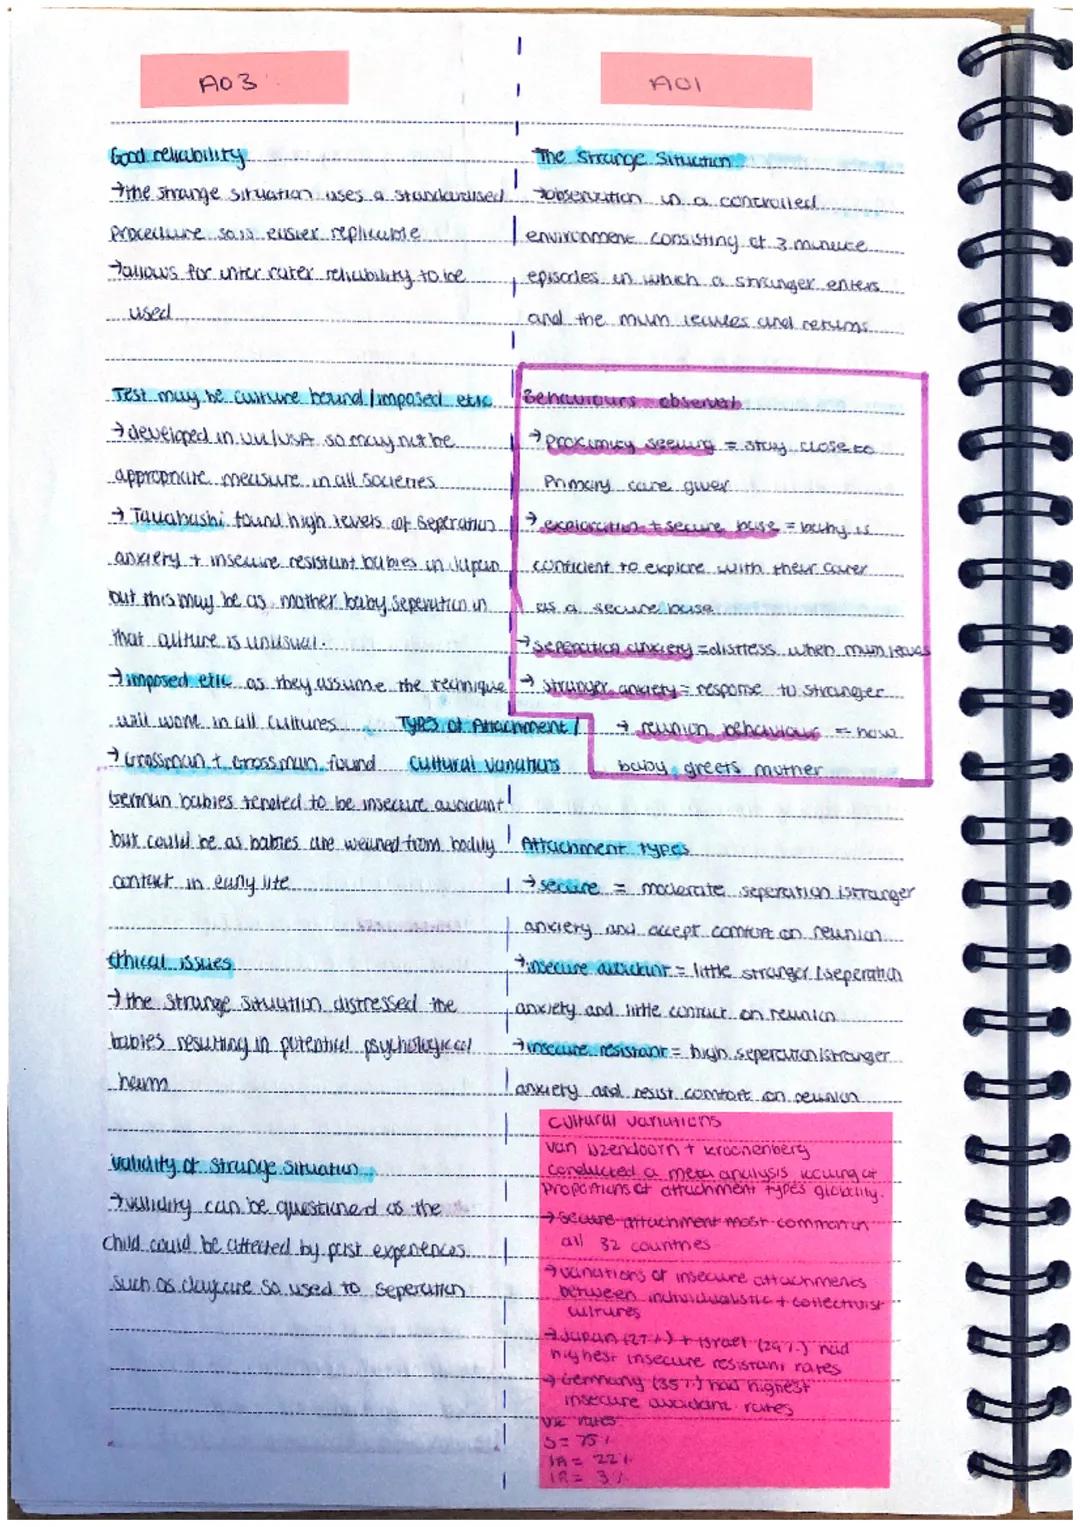 AO3
Good reliability
→the strange situation uses a standardised
procedure so is easier replicable
→allows for inter rater reliability to be
used
Test may be culture bound/imposed etic
→developed in UK/USA so may not be
appropriate measure in all societies
→ Takahashi found high levels of seperation
anxiety + insecure resistant babies in Japan
but this may be as mother baby seperation in
that culture is unusual.
→imposed etic as they assume the technique
will work in all cultures
→ Grossman + Grossman found
German babies tended to be insecure avoidant
but could be as babies are weaned from bodily
contact in early life
Ethical issues
→ the strange situation distressed the
babies resulting in potential psychological
harm
Validity of strange situation
→validity can be questioned as the
child could be affected by past experiences
such as daycare so used to seperation
Types of Attachment /
Cultural variations
AO1
The Strange Situation
→observation in a controlled
environment consisting of 3 minute
episodes in which a stranger enters
and the mum leaves and returns
Behaviours observed
→ proximity seeking = stay close to
Primary care giver
→ exploration + secure base = baby is
confident to explore with their carer
as a secure base
→ seperation anxiety = distress when mum leaves
→ stranger anxiety = response to stranger
→ reunion behaviour = how
baby greets mother
Attachment types
→ secure = moderate seperation /stranger
anxiety and accept comfort on reunion
→insecure avoidant = little stranger /seperation
anxiety and little contact on reunion
→insecure resistant = high seperation/stranger
anxiety and resist comfort on reunion
Cultural variations
van Ijzendoorn + kroonenberg
conducted a meta analysis looking at
proportions of attachment types globally.
→ Secure attachment most common in
all 32 countries
→ variations of insecure attachments
between individualistic + collectivist
cultures
→ Japan (27%) + Israel (29%) had
highest insecure resistant rates
→ Germany (35%) had highest
insecure avoidant rates
UK rates
S = 75%
IA = 22%
IR = 3%